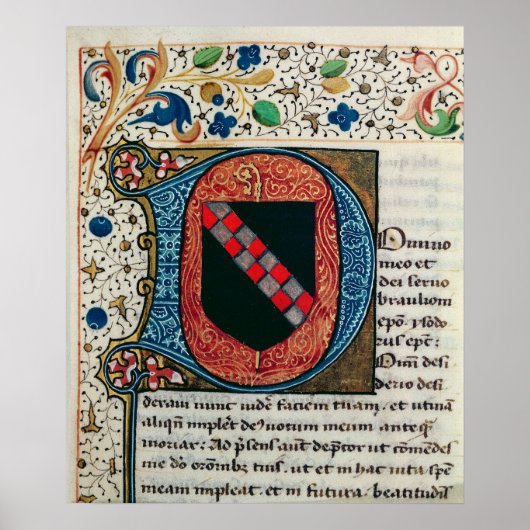 Domino
meo et
dei servo
braulioni
epō. ysido
rus epc:
Om̄i desi
derio desi
deravi nunc videː faciem tuam. et utinā
aliqn̄ impleᷤt deː votum meum anteq̄
moriar: Ad p̄sens aut̄ dep̄tor ut cōmendes
me dō orōnibꝫ tuis. ut et in hac vita spem
meam impleat. et in futura. beatitudīs